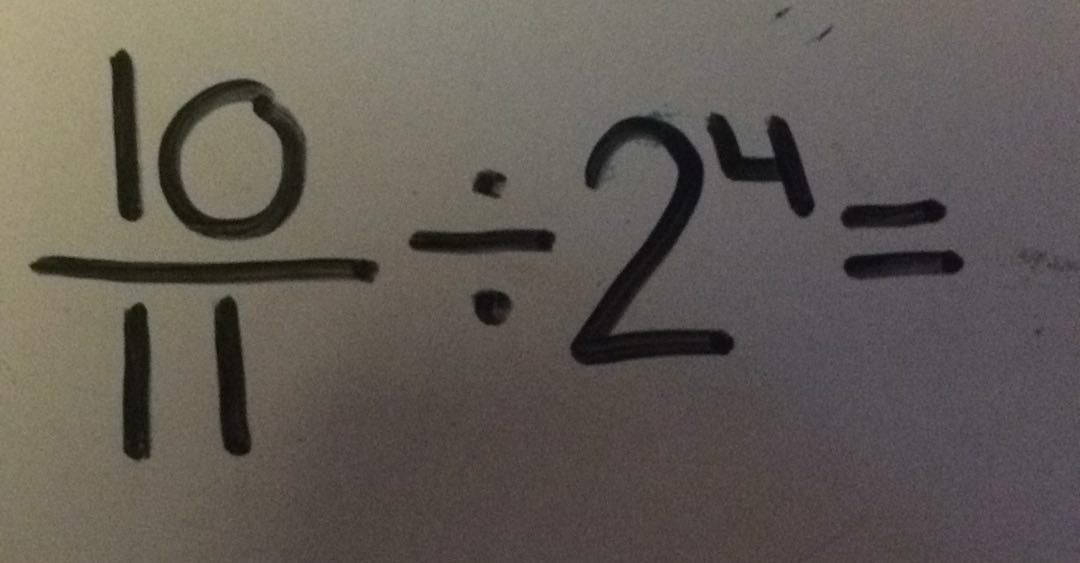 10/11 ÷ 2⁴ =